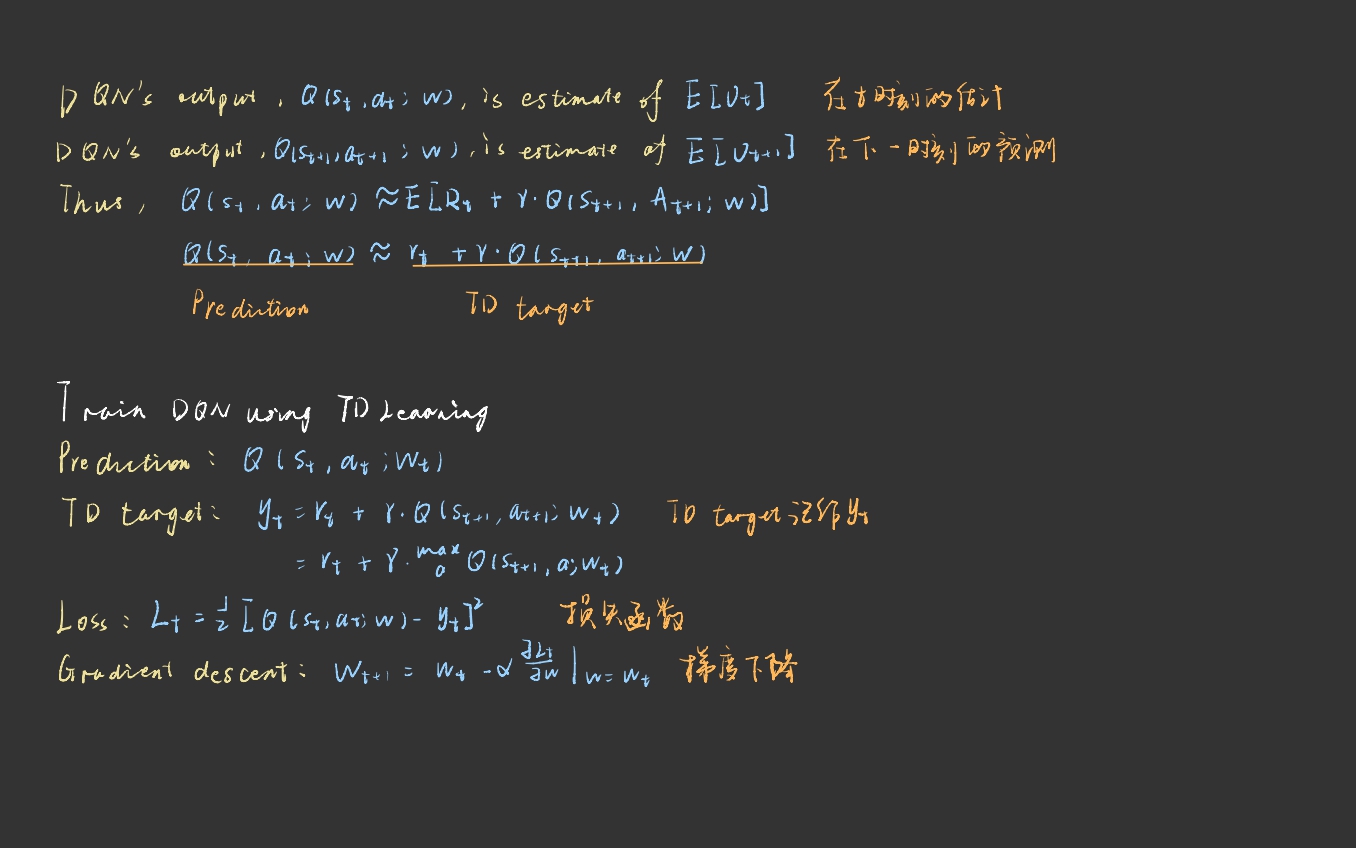 DQN's output, Q(sₜ, aₜ; w), is estimate of E[Uₜ] 在t时刻的估计
DQN's output, Q(sₜ₊₁, aₜ₊₁; w), is estimate of E[Uₜ₊₁] 在下一时刻的预测
Thus, Q(sₜ, aₜ; w) ≈ E[Rₜ + γ·Q(Sₜ₊₁, Aₜ₊₁; w)]
Q(sₜ, aₜ; w) ≈ rₜ + γ·Q(sₜ₊₁, aₜ₊₁; w)
Prediction TD target
Train DQN using TD Learning
Prediction: Q(sₜ, aₜ; wₜ)
TD target: yₜ = rₜ + γ·Q(sₜ₊₁, aₜ₊₁; wₜ) TD target记作yₜ
= rₜ + γ·max_a Q(sₜ₊₁, a; wₜ)
Loss: Lₜ = 1/2 [Q(sₜ, aₜ; w) - yₜ]² 损失函数
Gradient descent: wₜ₊₁ = wₜ - α ∂Lₜ/∂w |w=wₜ 梯度下降